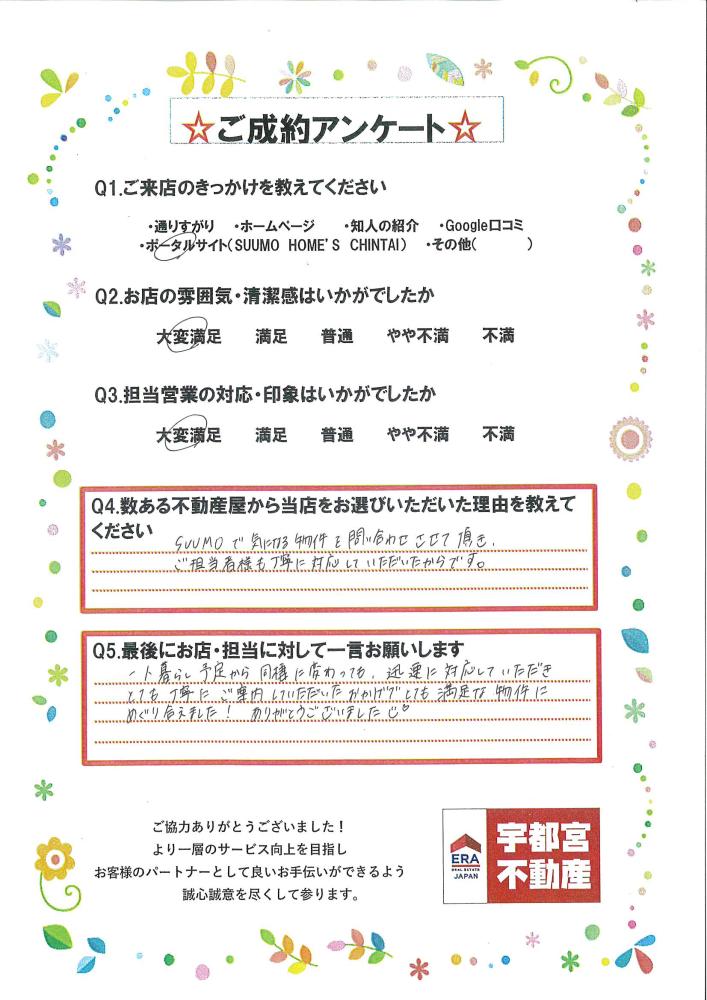 ☆ご成約アンケート☆
Q1.ご来店のきっかけを教えてください
・通りすがり ・ホームページ ・知人の紹介 ・Google口コミ
・ポータルサイト(SUUMO HOME'S CHINTAI) ・その他( )
Q2.お店の雰囲気・清潔感はいかがでしたか
大変満足 満足 普通 やや不満 不満
Q3.担当営業の対応・印象はいかがでしたか
大変満足 満足 普通 やや不満 不満
Q4.数ある不動産屋から当店をお選びいただいた理由を教えて
ください
SUUMOで気になる物件を問い合わせさせて頂き、
ご担当者様も丁寧に対応していただいたからです。
Q5.最後にお店・担当に対して一言お願いします
一人暮らし予定から同棲に変わっても、迅速に対応していただき
とても丁寧にご案内していただいたおかげでとても満足な物件に
めぐり合えました! ありがとうございました
ご協力ありがとうございました!
より一層のサービス向上を目指し
お客様のパートナーとして良いお手伝いができるよう
誠心誠意を尽くして参ります。
ERA
REAL ESTATE
JAPAN
宇都宮
不動産